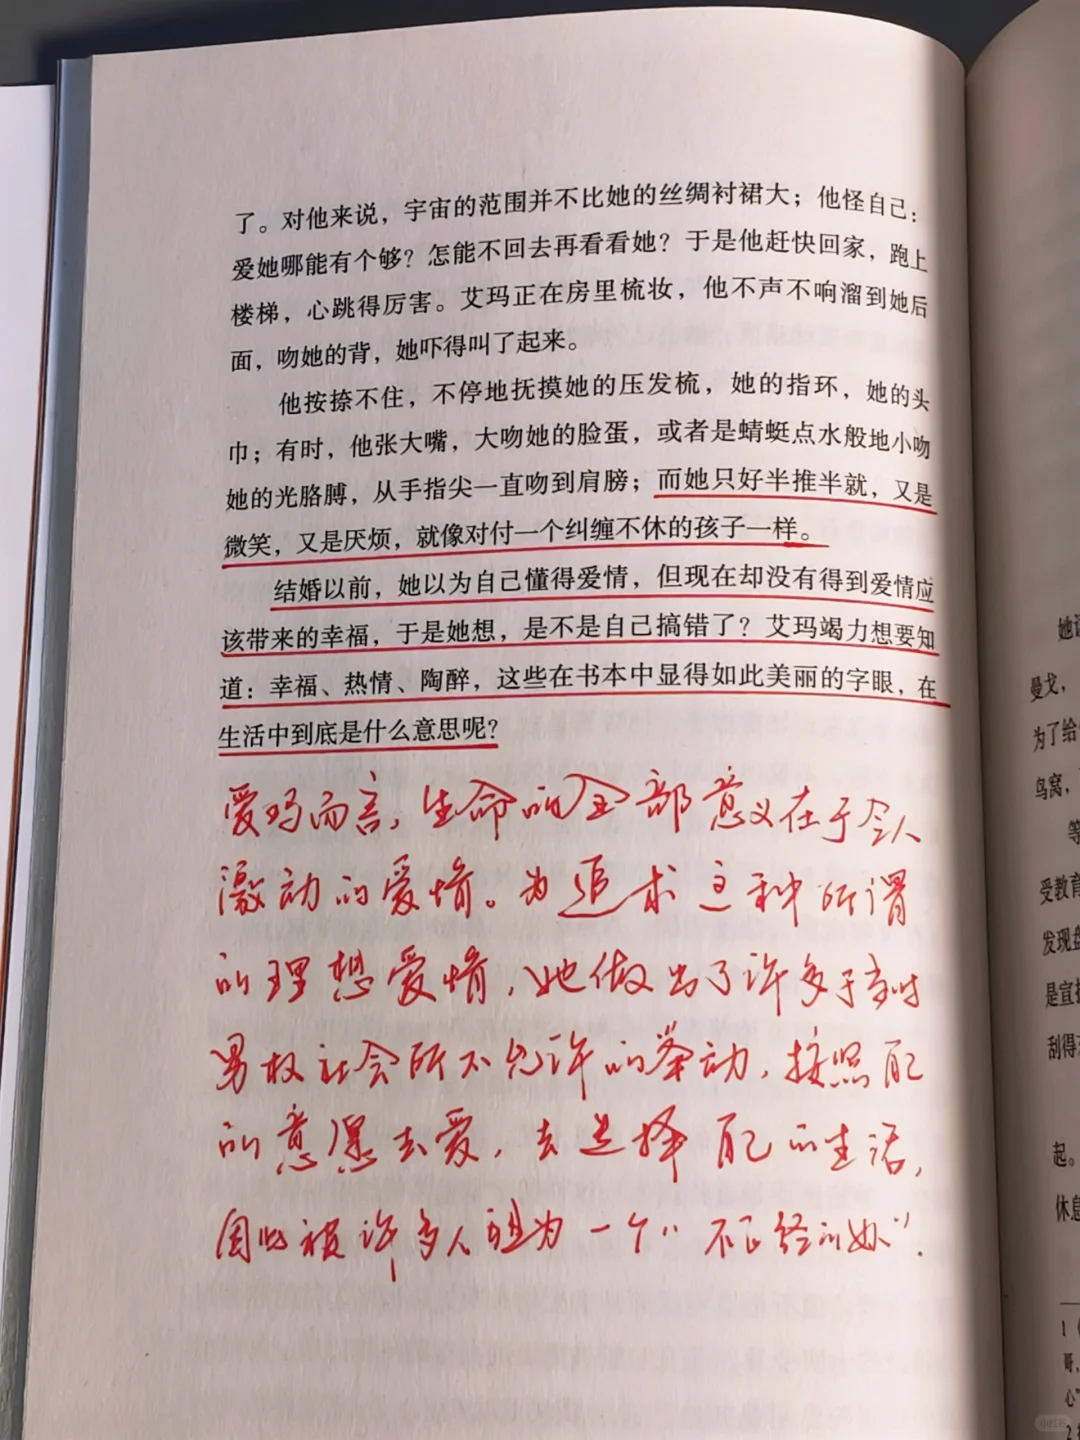 了。对他来说，宇宙的范围并不比她的丝绸衬裙大；他怪自己：
爱她哪能有个够？怎能不回去再看看她？于是他赶快回家，跑上
楼梯，心跳得厉害。艾玛正在房里梳妆，他不声不响溜到她后
面，吻她的背，她吓得叫了起来。
他按捺不住，不停地抚摸她的压发梳，她的指环，她的头
巾；有时，他张大嘴，大吻她的脸蛋，或者是蜻蜓点水般地小吻
她的光胳膊，从手指尖一直吻到肩膀；而她只好半推半就，又是
微笑，又是厌烦，就像对付一个纠缠不休的孩子一样。
结婚以前，她以为自己懂得爱情，但现在却没有得到爱情应
该带来的幸福，于是她想，是不是自己搞错了？艾玛竭力想要知
道：幸福、热情、陶醉，这些在书本中显得如此美丽的字眼，在
生活中到底是什么意思呢？
爱玛而言，生命的全部意义在于令人
激动的爱情。为追求这种所谓
的理想爱情，她做出了许多于当时
男权社会所不允许的举动，按照配
的意愿去爱，去选择配的生活，
因此被许多人视为一个"不正经的
她
曼戈，
为了给
鸟窝，
等
受教育
发现
是宣
刮得
起。
休息
1
哥，
心
2